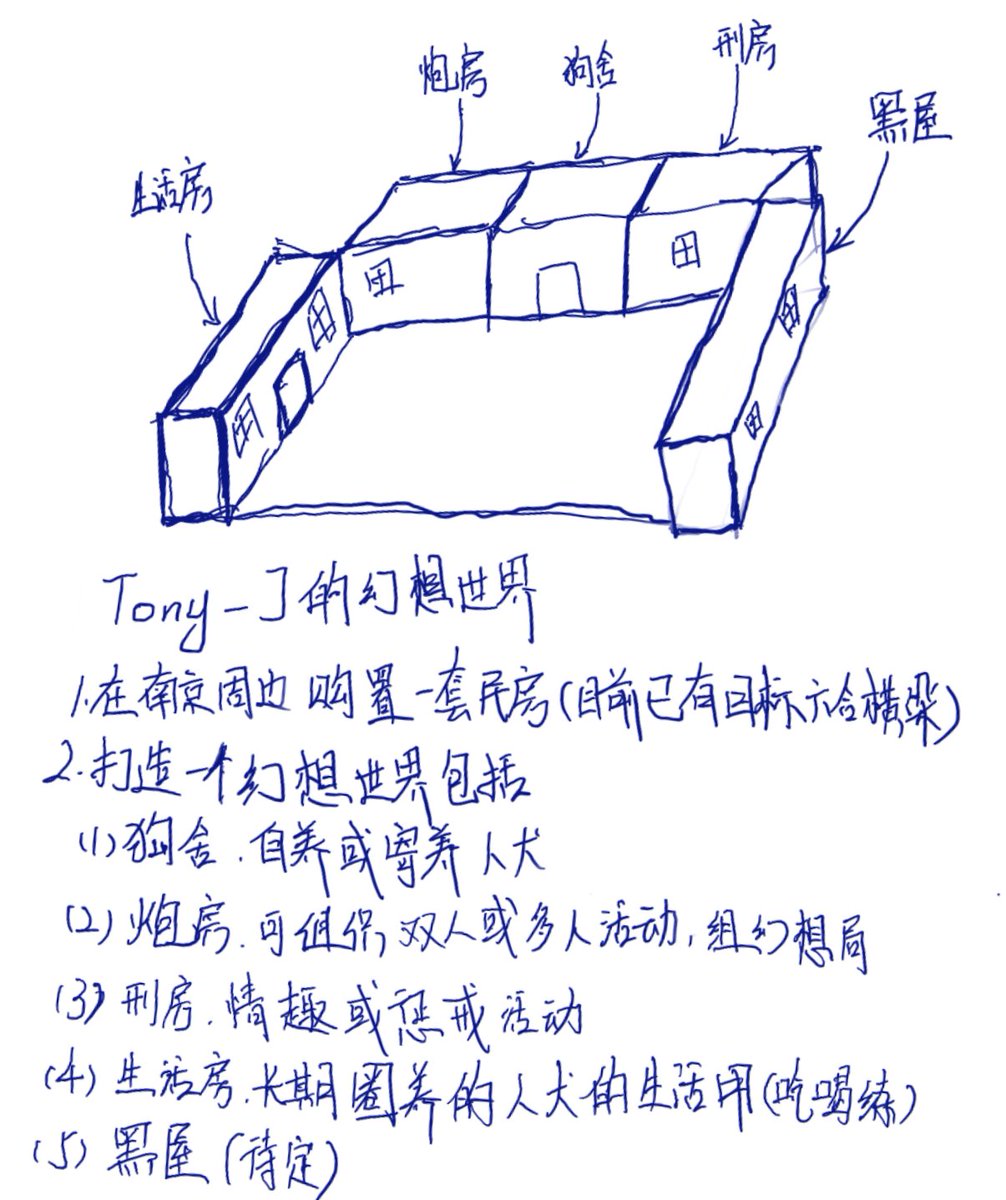 炮房
狗舍
刑房
黑屋
生活房
Tony-J的幻想世界
1.在南京周边购置一套民房(目前已有目标六合横梁)
2.打造一个幻想世界包括
(1)狗舍.自养或寄养人犬
(2)炮房.可组织双人或多人活动,组幻想局
(3)刑房.情趣或惩戒活动
(4)生活房.长期圈养的人犬的生活用(吃喝练)
(5)黑屋(待定)